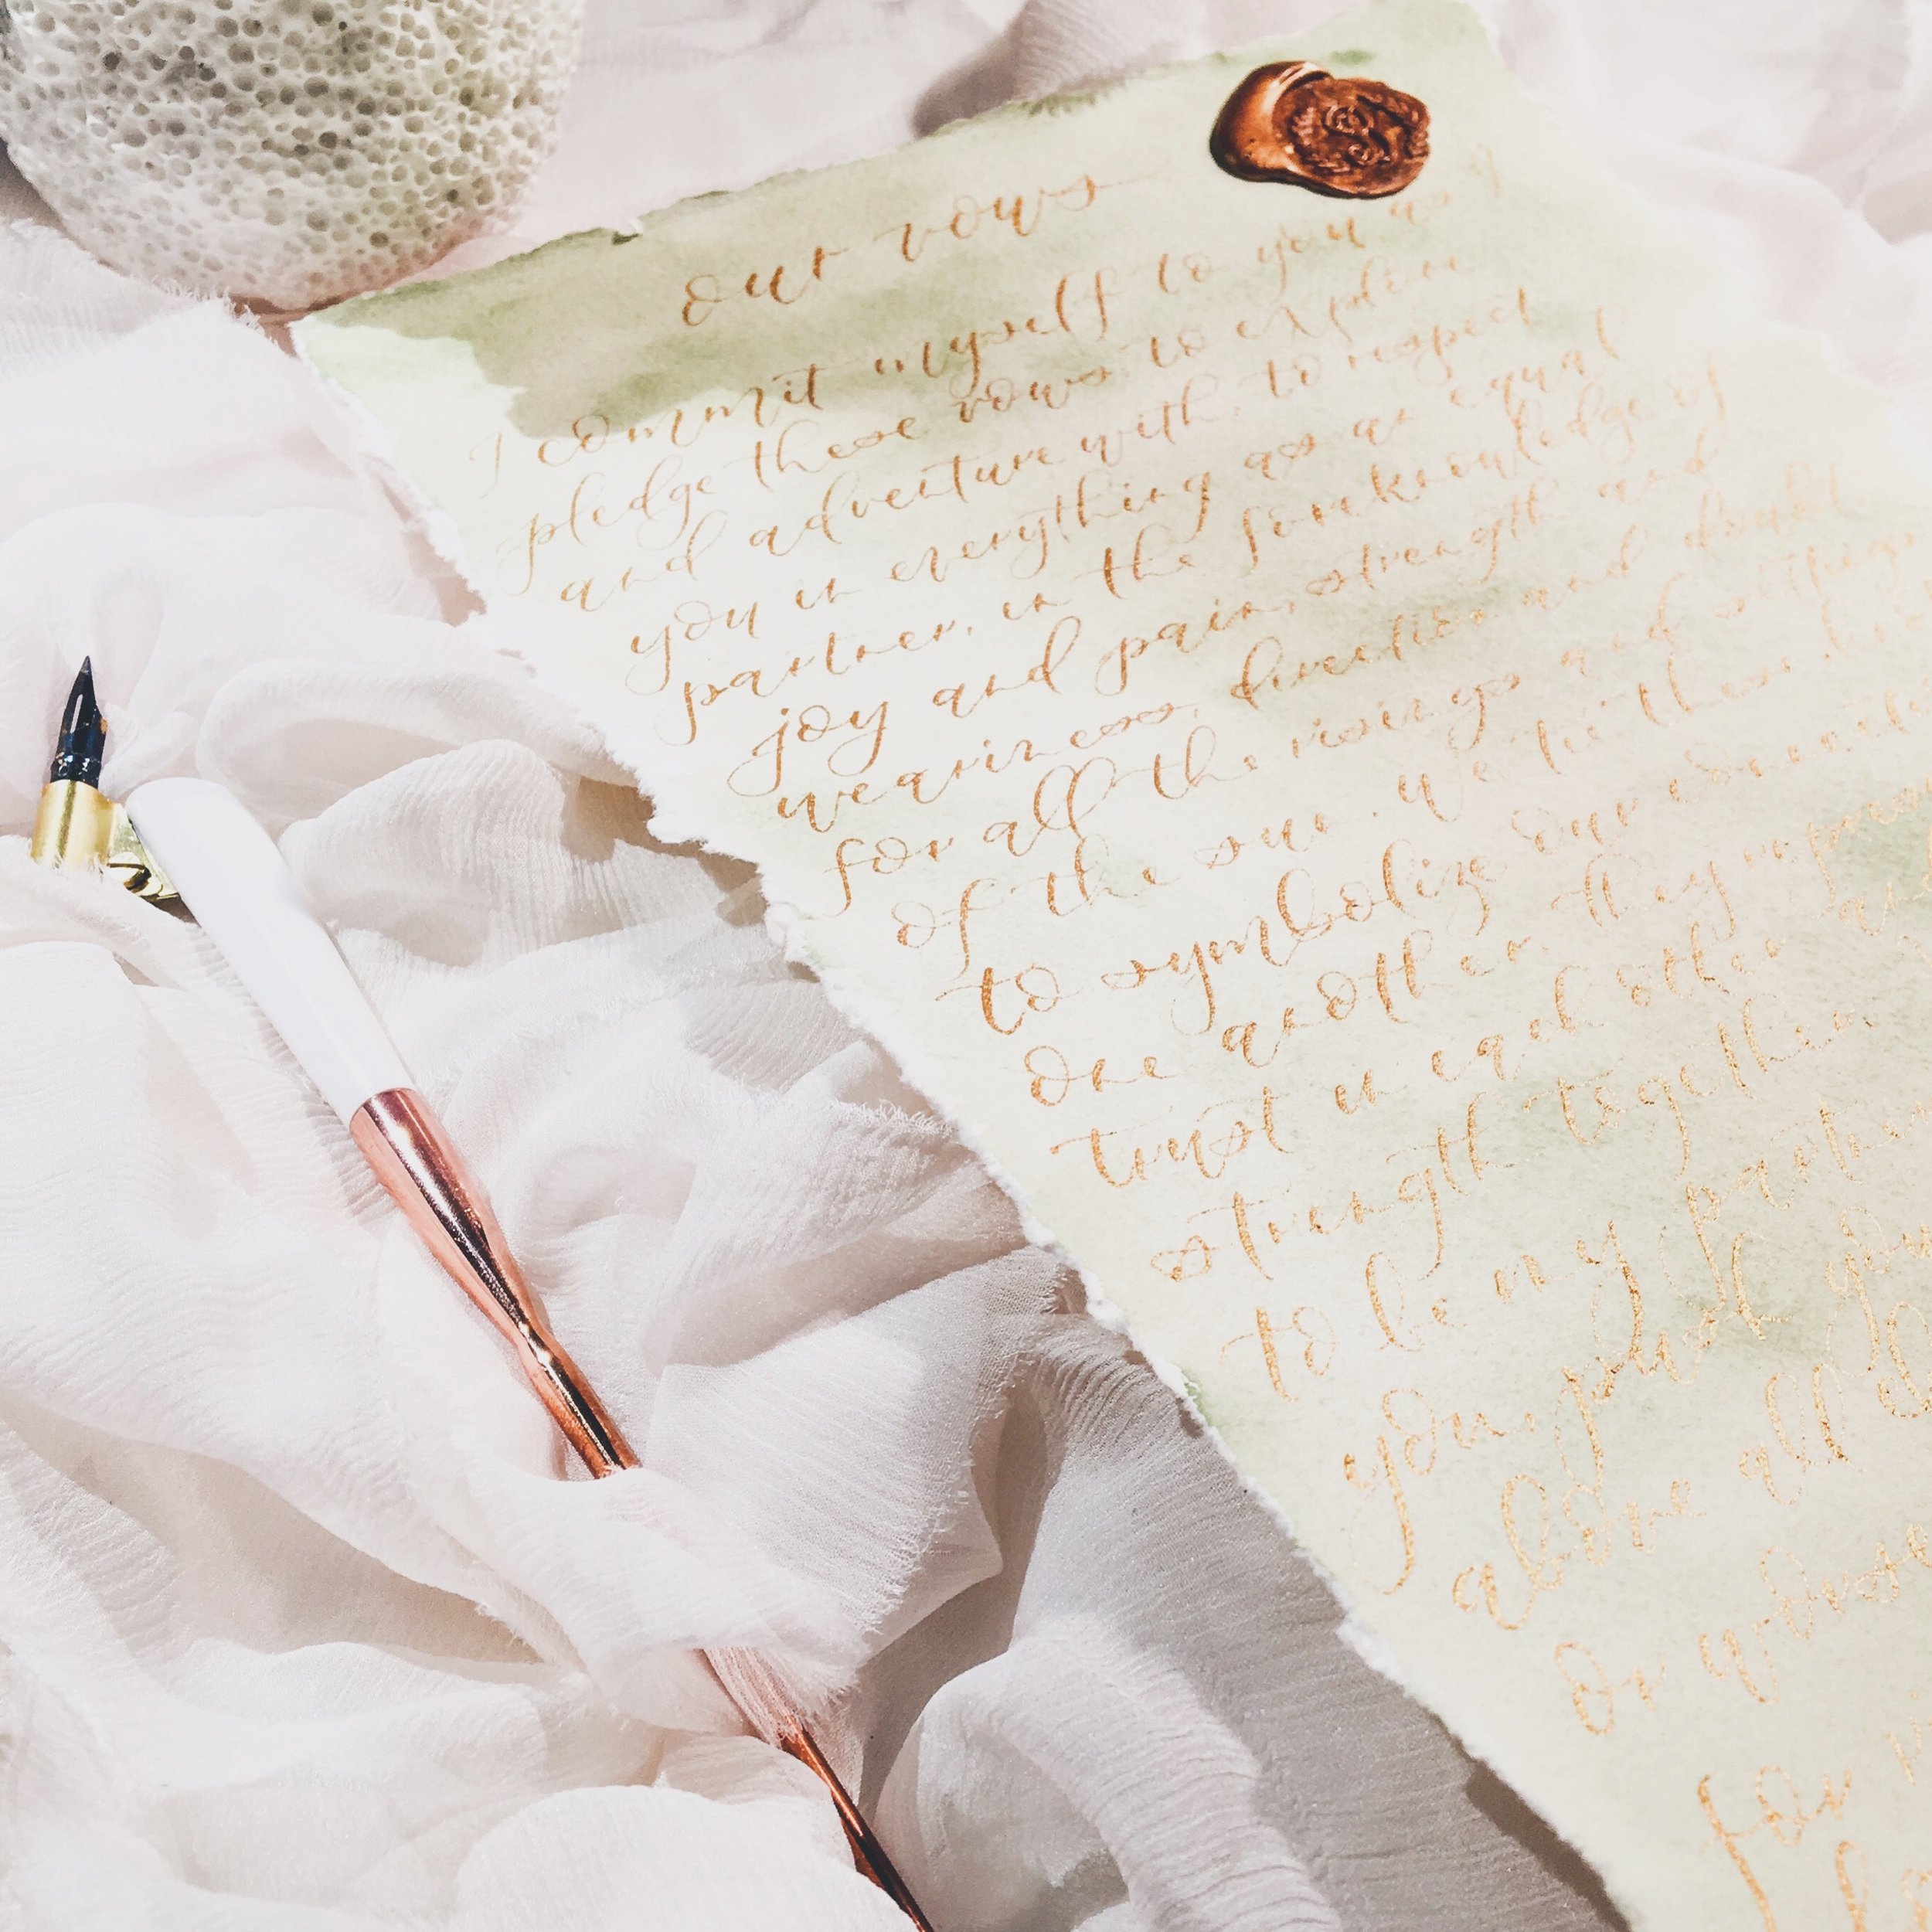 our vows
I commit myself to you as I
pledge these vows to explore
and adventure with, to respect
you in everything as an equal
partner, in the foreknowledge of
joy and pain, strength and
weariness, direction and doubt
for all the risings and settings
of the sun. We tie these
to symbolize our
one another. they
trust in each other and
strength together
to be my partner
you,
above all
or
for